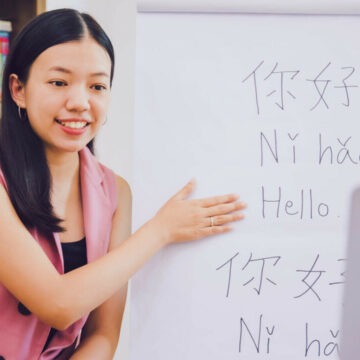 你好
Nǐ hǎ
Hello.
你好
Nǐ hǎ